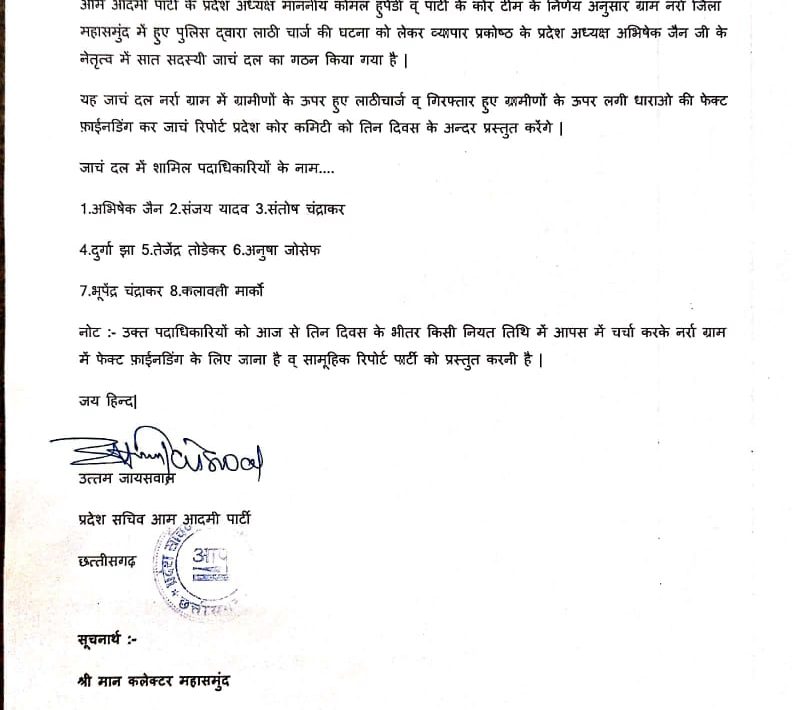 आम आदमी पार्टी के प्रदेश अध्यक्ष माननीय कोमल हुपेंडी व् पार्टी के कोर टीम के निर्णय अनुसार ग्राम नर्रा जिला
महासमुंद में हुए पुलिस द्वारा लाठी चार्ज की घटना को लेकर व्यापार प्रकोष्ठ के प्रदेश अध्यक्ष अभिषेक जैन जी के
नेतृत्व में सात सदस्यी जाचं दल का गठन किया गया है |
यह जाचं दल नर्रा ग्राम में ग्रामीणों के ऊपर हुए लाठीचार्ज व् गिरफ्तार हुए ग्रामीणों के ऊपर लगी धाराओ की फेक्ट
फ़ाईनडिंग कर जाचं रिपोर्ट प्रदेश कोर कमिटी को तिन दिवस के अन्दर प्रस्तुत करेंगे |
जाचं दल में शामिल पदाधिकारियों के नाम....
1.अभिषेक जैन 2.संजय यादव 3.संतोष चंद्राकर
4.दुर्गा झा 5.तेजेंद्र तोडेकर 6.अनुषा जोसेफ
7.भूपेंद्र चंद्राकर 8.कलावती मार्को
नोट :- उक्त पदाधिकारियों को आज से तिन दिवस के भीतर किसी नियत तिथि में आपस में चर्चा करके नर्रा ग्राम
में फेक्ट फ़ाईनडिंग के लिए जाना है व् सामूहिक रिपोर्ट पार्टी को प्रस्तुत करनी है |
जय हिन्द|
उत्तम जायसवाल
प्रदेश सचिव आम आदमी पार्टी
छत्तीसगढ़
आप
सूचनार्थ :-
श्री मान कलेक्टर महासमुंद